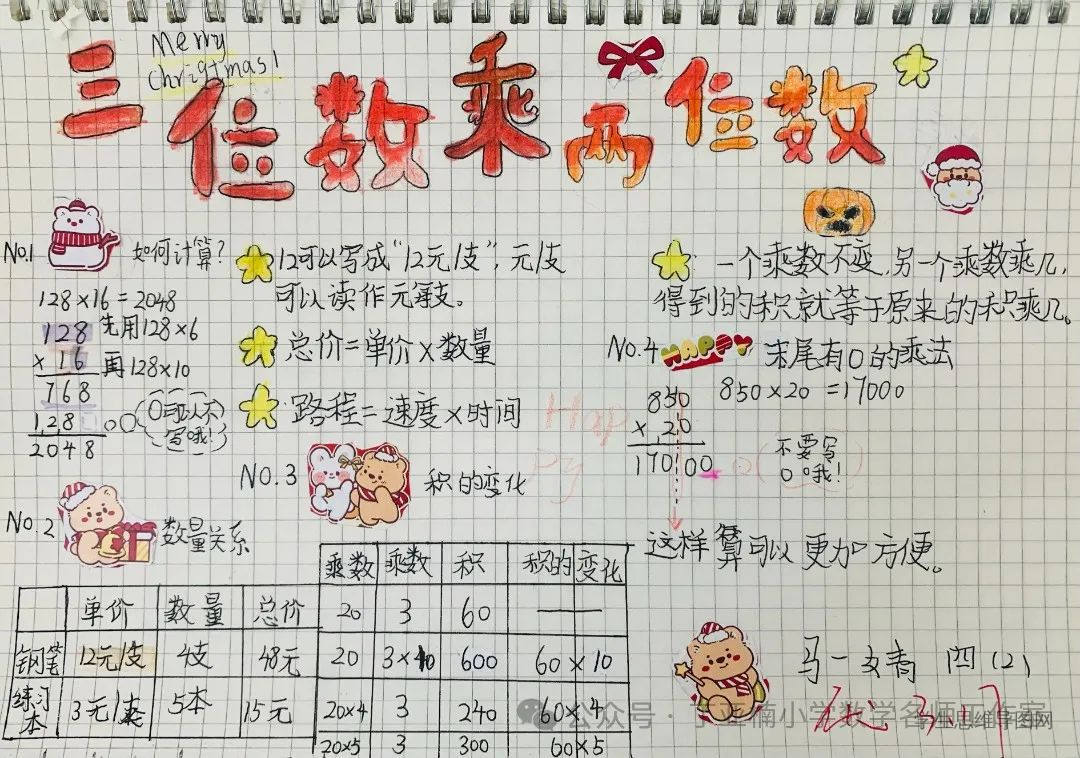 Merry
Christmas!
三位数乘两位数
No.1 如何计算?
128×16=2048
128 先用128×6
×16 再128×10
768
128 0可以不
写哦!
2048
12可以写成“12元/支”,元/支
可以读作元每支。
总价=单价×数量
路程=速度×时间
No.2 数量关系
单价 数量 总价
钢笔 12元/支 4支 48元
练习本 3元/本 5本 15元
No.3 积的变化
乘数 乘数 积 积的变化
20 3 60 ——
20 3×10 600 60×10
20×4 3 240 60×4
20×5 3 300 60×5
一个乘数不变,另一个乘数乘几,
得到的积就等于原来的积乘几。
No.4 HAPPY 末尾有0的乘法
850×20=17000
850
×20
17000
不要写
0哦!
这样算可以更加方便。
四(2)
Happy
公众号·
小学数学名师工作室
思维导图网